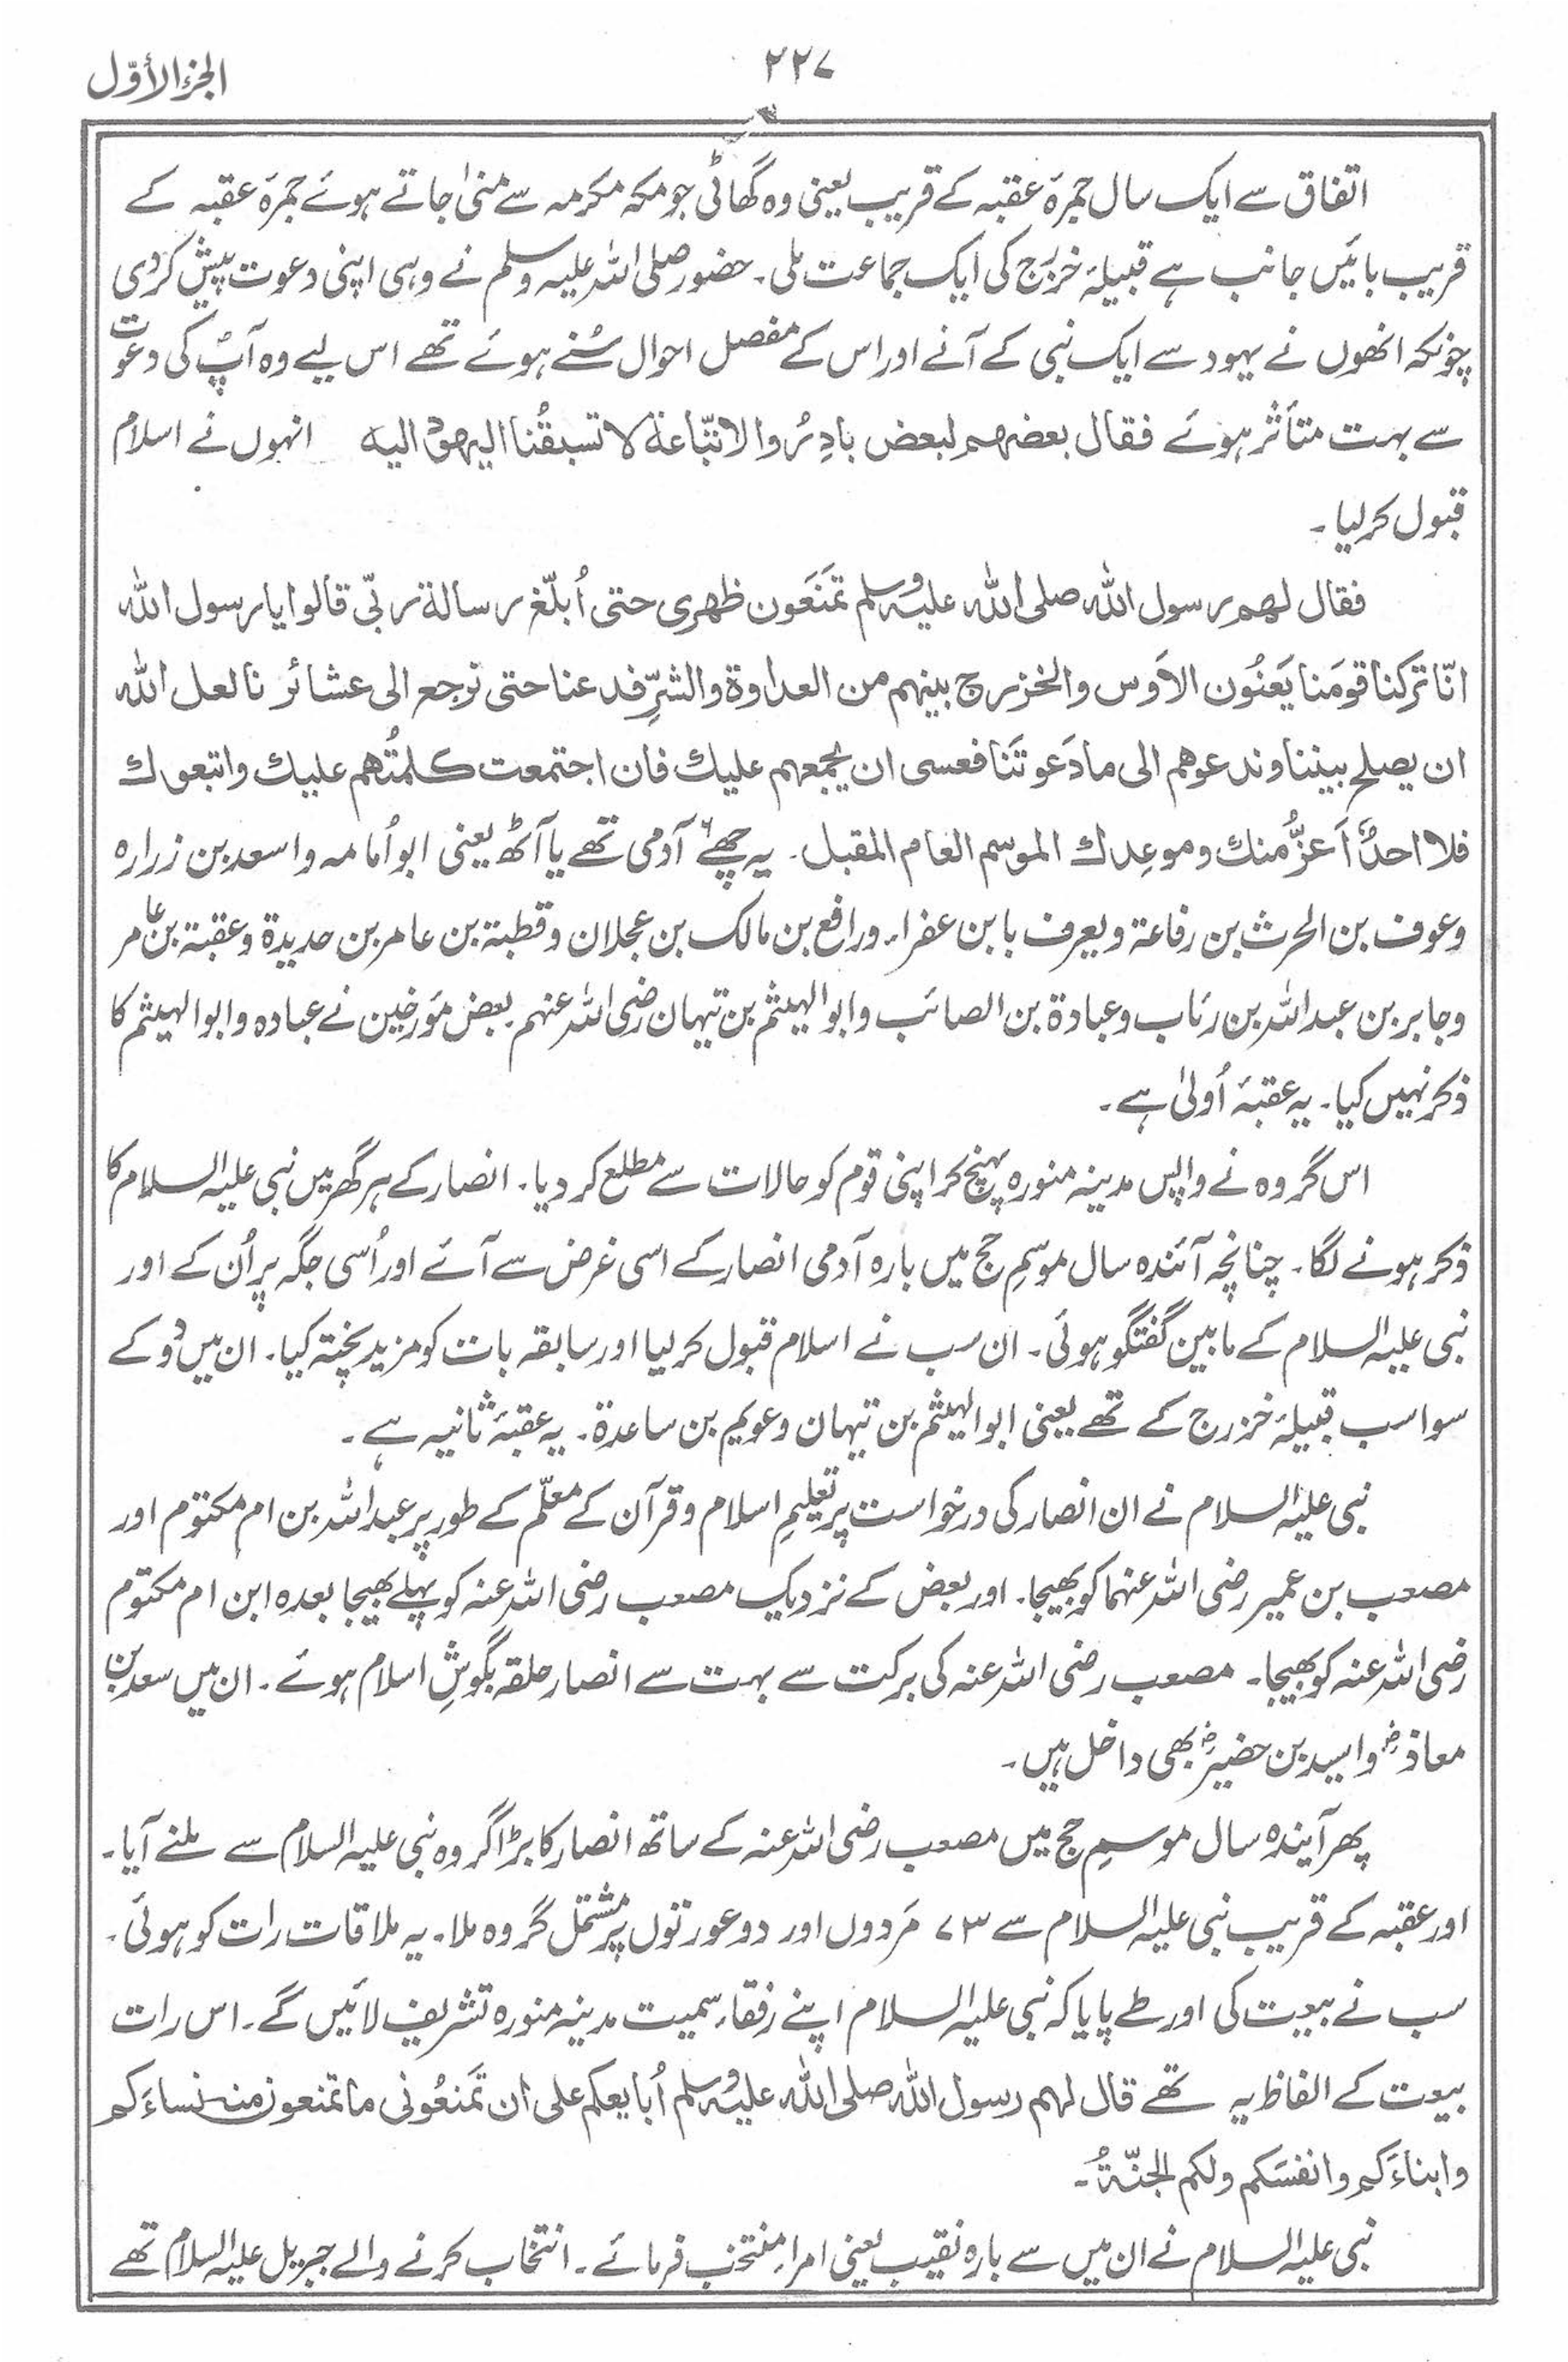 الجزء الأوّل
۲۲۷
اتفاق سے ایک سال جمرۂ عقبہ کے قریب یعنی وہ گھاٹی جو مکہ مکرمہ سے منیٰ جاتے ہوئے جمرۂ عقبہ کے
قریب بائیں جانب ہے قبیلۂ خزرج کی ایک جماعت ملی۔ حضور صلی اللہ علیہ وسلم نے وہی اپنی دعوت پیش کردی
چونکہ انھوں نے یہود سے ایک نبی کے آنے اور اس کے مفصل احوال سُنے ہوئے تھے اس لیے وہ آپؐ کی دعوت
سے بہت متأثر ہوئے فقال بعضهم لبعض بادِرُوا لاتّباعهٖ لا تسبقُنا اليهود اليه انہوں نے اسلام
قبول کرلیا۔
فقال لهم رسول الله صلى الله عليه وسلم تَمنَعون ظهرى حتى أُبلّغ رسالة ربّى قالوا يا رسول الله
انّا تركنا قومَنا يَعنُون الاَوس والخزرج بينهم من العداوة والشرِّ فدعنا حتى نرجع الى عشائرنا لعل الله
ان يصلح بيننا وندعوهم الى ما دَعوتَنا فعسى ان يجمعهم عليك فان اجتمعت كلمتُهم عليك واتبعوك
فلا احدٌ اَعزُّ منك وموعِدك الموسم العام المقبل۔ یہ چھے۶ آدمی تھے یا آٹھ یعنی ابو اُمامہ و اسعد بن زرارہ
وعوف بن الحرث بن رفاعۃ ویعرف بابن عفراء۔ ورافع بن مالک بن عجلان وقطبۃ بن عامر بن حدیدۃ وعقبۃ بن عامر
وجابر بن عبداللہ بن رئاب وعبادۃ بن الصائب وابوالہیثم بن تیہان رضی اللہ عنہم۔ بعض مؤرخین نے عبادہ وابوالہیثم کا
ذکر نہیں کیا۔ یہ عقبۂ اُولیٰ ہے۔
اس گروہ نے واپس مدینہ منورہ پہنچ کر اپنی قوم کو حالات سے مطلع کردیا۔ انصار کے ہر گھر میں نبی علیہ السلام کا
ذکر ہونے لگا۔ چنانچہ آئندہ سال موسمِ حج میں بارہ آدمی انصار کے اسی غرض سے آئے اور اُسی جگہ پر اُن کے اور
نبی علیہ السلام کے مابین گفتگو ہوئی۔ ان سب نے اسلام قبول کرلیا اور سابقہ بات کو مزید پختہ کیا۔ ان میں دُو کے
سوا سب قبیلۂ خزرج کے تھے یعنی ابوالہیثم بن تیہان وعویم بن ساعدۃ۔ یہ عقبۂ ثانیہ ہے۔
نبی علیہ السلام نے ان انصار کی درخواست پر تعلیمِ اسلام و قرآن کے معلّم کے طور پر عبداللہ بن ام مکتوم اور
مصعب بن عمیر رضی اللہ عنہما کو بھیجا۔ اور بعض کے نزدیک مصعب رضی اللہ عنہ کو پہلے بھیجا بعدہ ابن ام مکتوم
رضی اللہ عنہ کو بھیجا۔ مصعب رضی اللہ عنہ کی برکت سے بہت سے انصار حلقہ بگوشِ اسلام ہوئے۔ ان میں سعد بن
معاذؓ و اسید بن حضیرؓ بھی داخل ہیں۔
پھر آیندہ سال موسمِ حج میں مصعب رضی اللہ عنہ کے ساتھ انصار کا بڑا گروہ نبی علیہ السلام سے ملنے آیا۔
اور عقبہ کے قریب نبی علیہ السلام سے ۷۳ مَردوں اور دو عورتوں پر مشتمل گروہ ملا۔ یہ ملاقات رات کو ہوئی۔
سب نے بیعت کی اور طے پایا کہ نبی علیہ السلام اپنے رفقاء سمیت مدینہ منورہ تشریف لائیں گے۔ اس رات
بیعت کے الفاظ یہ تھے قال لهم رسول الله صلى الله عليه وسلم اُبايعكم على ان تَمنعُونى ما تمنعون منه نساءَكم
وابناءَكم وانفسَكم ولكم الجنّةُ۔
نبی علیہ السلام نے ان میں سے بارہ نقیب یعنی امراء منتخب فرمائے۔ انتخاب کرنے والے جبریل علیہ السلام تھے